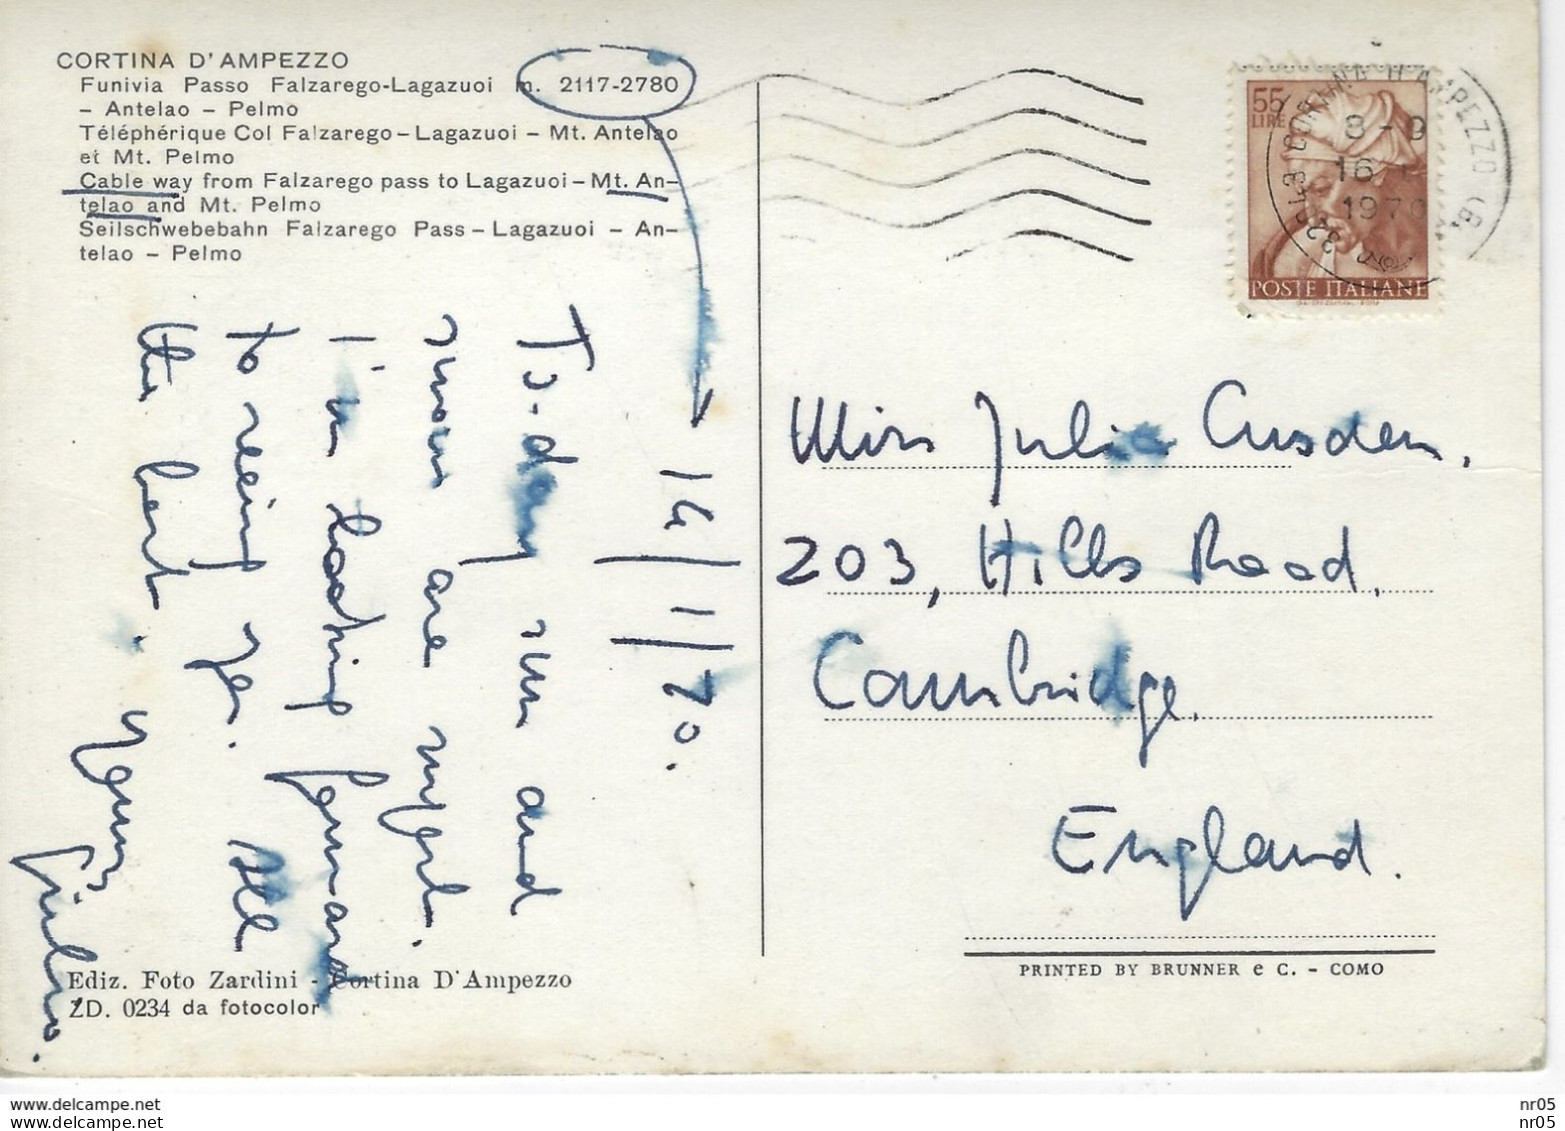 CORTINA D'AMPEZZO
Funivia Passo Falzarego-Lagazuoi m. 2117-2780
– Antelao – Pelmo
Téléphérique Col Falzarego – Lagazuoi – Mt. Antelao
et Mt. Pelmo
Cable way from Falzarego pass to Lagazuoi – Mt. An-
telao and Mt. Pelmo
Seilschwebebahn Falzarego Pass – Lagazuoi – An-
telao – Pelmo
14/1/70.
To-day sun and
snow are superb.
I'm looking forward
to seeing you. All
the best. Yours
Giuliano.
Ediz. Foto Zardini - Cortina D'Ampezzo
ZD. 0234 da fotocolor
55
LIRE
POSTE ITALIANE
CORTINA D'AMPEZZO
8-9
16
1970
Miss Julia Cusden,
203, Hills Road.
Cambridge.
England.
PRINTED BY BRUNNER e C. - COMO
delcampe.net
nr05
delcampe.net
nr05